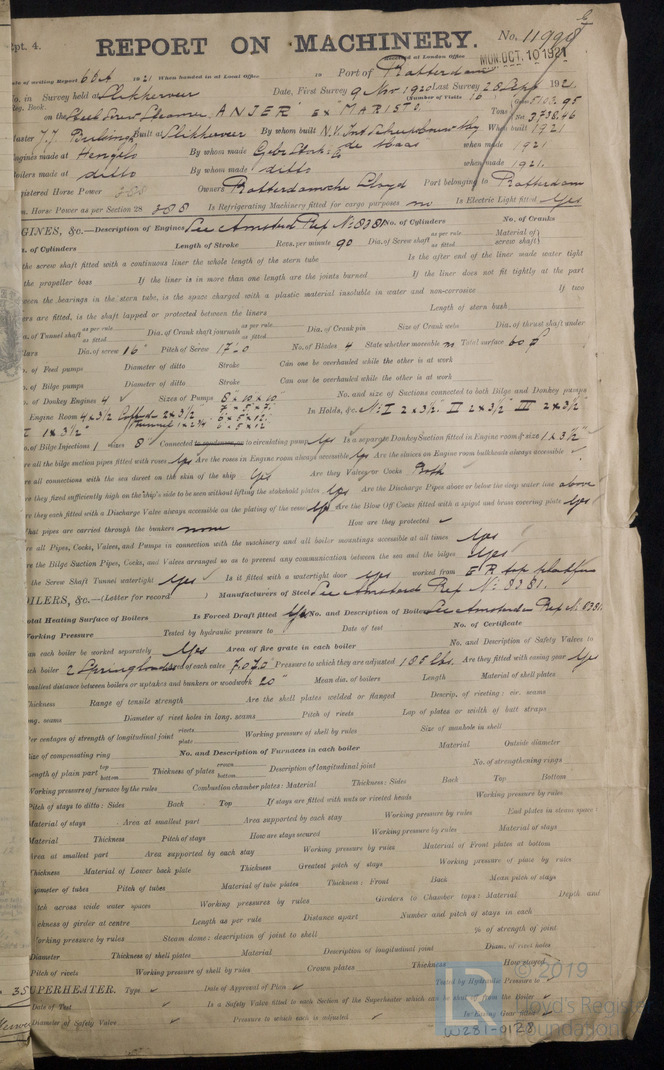 Rpt. 4.
REPORT ON MACHINERY.
No. 11998
Received at London Office MON. OCT. 10 1921
Date of writing Report 6 Oct 1921 When handed in at Local Office 19 Port of Rotterdam
No. in Survey held at Slikkerveer Date, First Survey 9 Nov 1920 Last Survey 28 Sept 1921
Reg. Book. Number of Visits 16
on the Steel Screw Steamer "ANJER" ex "MARISTO" Tons
Master J.J. Built at Slikkerveer By whom built When built 1921
Engines made at Hengelo By whom made Gebr. Stork & Co when made 1921
Boilers made at ditto By whom made ditto when made 1921
Registered Horse Power Owners Rotterdamsche Lloyd Port belonging to Rotterdam
Nom. Horse Power as per Section 28 388 Is Refrigerating Machinery fitted for cargo purposes no Is Electric Light fitted Yes
ENGINES, &c.—Description of Engines See Amsterd Rep No 8381 No. of Cylinders No. of Cranks
Dia. of Cylinders Length of Stroke Revs. per minute 90 Dia. of Screw shaft as per rule as fitted Material of screw shaft
Is the screw shaft fitted with a continuous liner the whole length of the stern tube Is the after end of the liner made water tight
in the propeller boss If the liner is in more than one length are the joints burned If the liner does not fit tightly at the part
between the bearings in the stern tube, is the space charged with a plastic material insoluble in water and non-corrosive If two
liners are fitted, is the shaft lapped or protected between the liners Length of stern bush
Dia. of Tunnel shaft as per rule as fitted Dia. of Crank shaft journals as per rule as fitted Dia. of Crank pin Size of Crank webs Dia. of thrust shaft under
collars Dia. of screw 16' Pitch of Screw 17'-0 No. of Blades 4 State whether moveable no Total surface 60
No. of Feed pumps Diameter of ditto Stroke Can one be overhauled while the other is at work
No. of Bilge pumps Diameter of ditto Stroke Can one be overhauled while the other is at work
No. of Donkey Engines 4 Sizes of Pumps 8 x 10 x 10 No. and size of Suctions connected to both Bilge and Donkey pumps
In Engine Room 4 x 3½ In Holds, &c. No I 2 x 3½ II 2 x 3½ III 2 x 3½
1 x 3½
No. of Bilge Injections 1 sizes 8 Connected to condenser, or to circulating pump Yes Is a separate Donkey Suction fitted in Engine room & size 1 x 3½
Are all the bilge suction pipes fitted with roses Yes Are the roses in Engine room always accessible Yes Are the sluices on Engine room bulkheads always accessible
Are all connections with the sea direct on the skin of the ship Yes Are they Valves or Cocks Both
Are they fixed sufficiently high on the ship's side to be seen without lifting the stokehold plates Yes Are the Discharge Pipes above or below the deep water line above
Are they each fitted with a Discharge Valve always accessible on the plating of the vessel Yes Are the Blow Off Cocks fitted with a spigot and brass covering plate Yes
What pipes are carried through the bunkers none How are they protected
Are all Pipes, Cocks, Valves, and Pumps in connection with the machinery and all boiler mountings accessible at all times Yes
Are the Bilge Suction Pipes, Cocks, and Valves arranged so as to prevent any communication between the sea and the bilges Yes
Is the Screw Shaft Tunnel watertight Yes Is it fitted with a watertight door Yes worked from E R top platform
BOILERS, &c.—(Letter for record ) Manufacturers of Steel See Amsterd Rep No: 8381.
Total Heating Surface of Boilers Is Forced Draft fitted Yes No. and Description of Boilers See Amsterdam Rep No 8381
Working Pressure Tested by hydraulic pressure to Date of test No. of Certificate
Can each boiler be worked separately Yes Area of fire grate in each boiler No. and Description of Safety Valves to
each boiler 2 Springloaded Area of each valve 7.070 Pressure to which they are adjusted 188 lbs. Are they fitted with easing gear Yes
Smallest distance between boilers or uptakes and bunkers or woodwork 20" Mean dia. of boilers Length Material of shell plates
Thickness Range of tensile strength Are the shell plates welded or flanged Descrip. of riveting: cir. seams
long. seams Diameter of rivet holes in long. seams Pitch of rivets Lap of plates or width of butt straps
Per centages of strength of longitudinal joint rivets plate Working pressure of shell by rules Size of manhole in shell
Size of compensating ring No. and Description of Furnaces in each boiler Material Outside diameter
Length of plain part top bottom Thickness of plates crown bottom Description of longitudinal joint No. of strengthening rings
Working pressure of furnace by the rules Combustion chamber plates: Material Thickness: Sides Back Top Bottom
Pitch of stays to ditto: Sides Back Top If stays are fitted with nuts or riveted heads Working pressure by rules
Material of stays Area at smallest part Area supported by each stay Working pressure by rules End plates in steam space:
Material Thickness Pitch of stays How are stays secured Working pressure by rules Material of stays
Area at smallest part Area supported by each stay Working pressure by rules Material of Front plates at bottom
Thickness Material of Lower back plate Thickness Greatest pitch of stays Working pressure of plate by rules
Diameter of tubes Pitch of tubes Material of tube plates Thickness: Front Back Mean pitch of stays
Pitch across wide water spaces Working pressures by rules Girders to Chamber tops: Material Depth and
thickness of girder at centre Length as per rule Distance apart Number and pitch of stays in each
Working pressure by rules Steam dome: description of joint to shell % of strength of joint
Diameter Thickness of shell plates Material Description of longitudinal joint Diam. of rivet holes
Pitch of rivets Working pressure of shell by rules Crown plates Thickness How stayed
SUPERHEATER. Type Date of Approval of Plan Tested by Hydraulic Pressure to
Date of Test Is a Safety Valve fitted to each Section of the Superheater which can be shut off from the Boiler
Diameter of Safety Valve Pressure to which each is adjusted Is Easing Gear fitted
© 2019
Lloyd's Register
Foundation
W281-0128